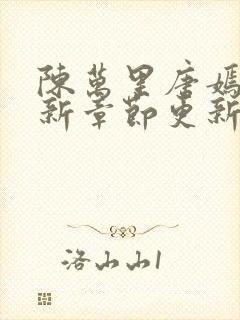 陳萬里唐嫣
新章節更新
洛山山1